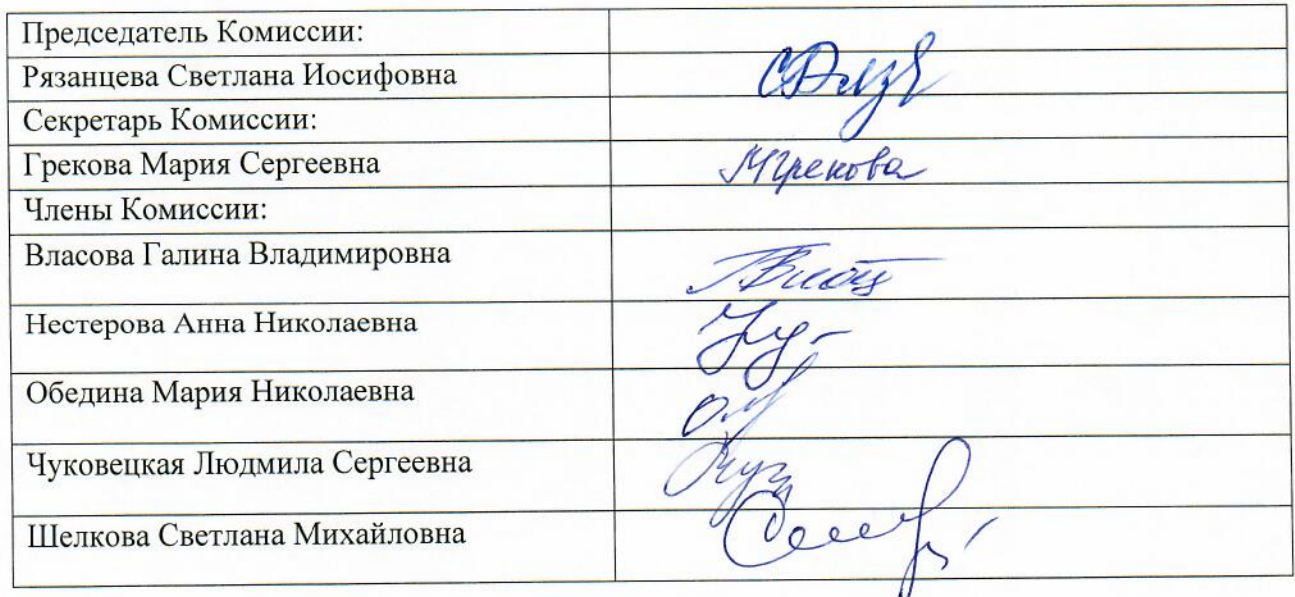 Председатель Комиссии:
Рязанцева Светлана Иосифовна
Секретарь Комиссии:
Грекова Мария Сергеевна
МГрекова
Члены Комиссии:
Власова Галина Владимировна
Нестерова Анна Николаевна
Обедина Мария Николаевна
Чуковецкая Людмила Сергеевна
Шелкова Светлана Михайловна